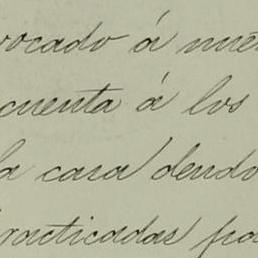 vocado á nues
cuenta á los
la casa dendo
practicadas pa